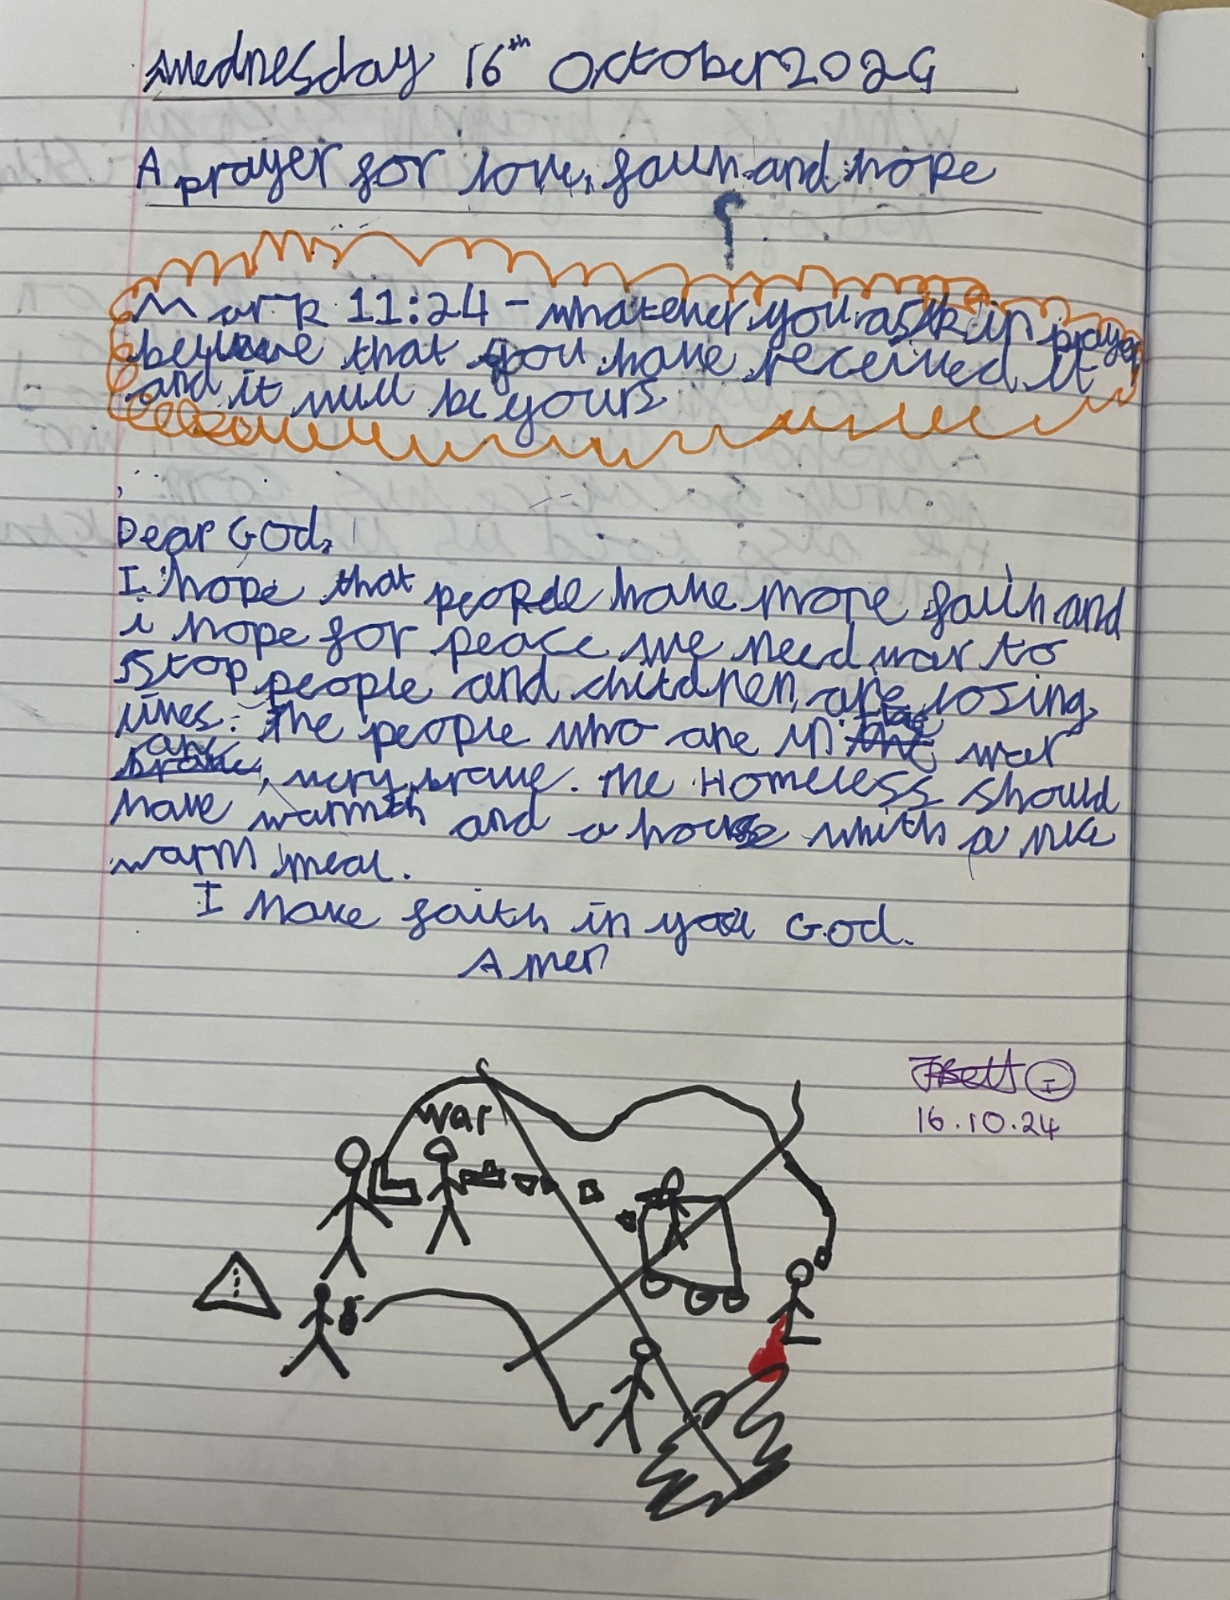 Wednesday 16th October 2024
A prayer for love, faith and hope
Mark 11:24 - whatever you ask in prayer
believe that you have received it
and it will be yours
Dear God,
I hope that people have more faith and
i hope for peace we need war to
stop people and children, are losing
lives. The people who are in the war
are very brave. The Homeless should
have warmth and a house with a nice
warm meal.
I have faith in you God.
Amen
war
16.10.24